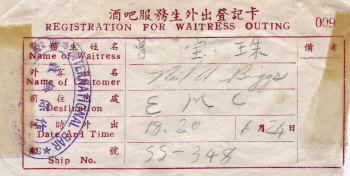 酒吧服務生外出登記卡
REGISTRATION FOR WAITRESS OUTING 009
服務生姓名 寶珠 備考
Name of Waitress
外客姓名
Name of Customer
前往處 EMC
Destination
外出時間 18.20 6月24日
Date and Time
船號 SS-348
Ship No.
INTERNATIONAL BAR